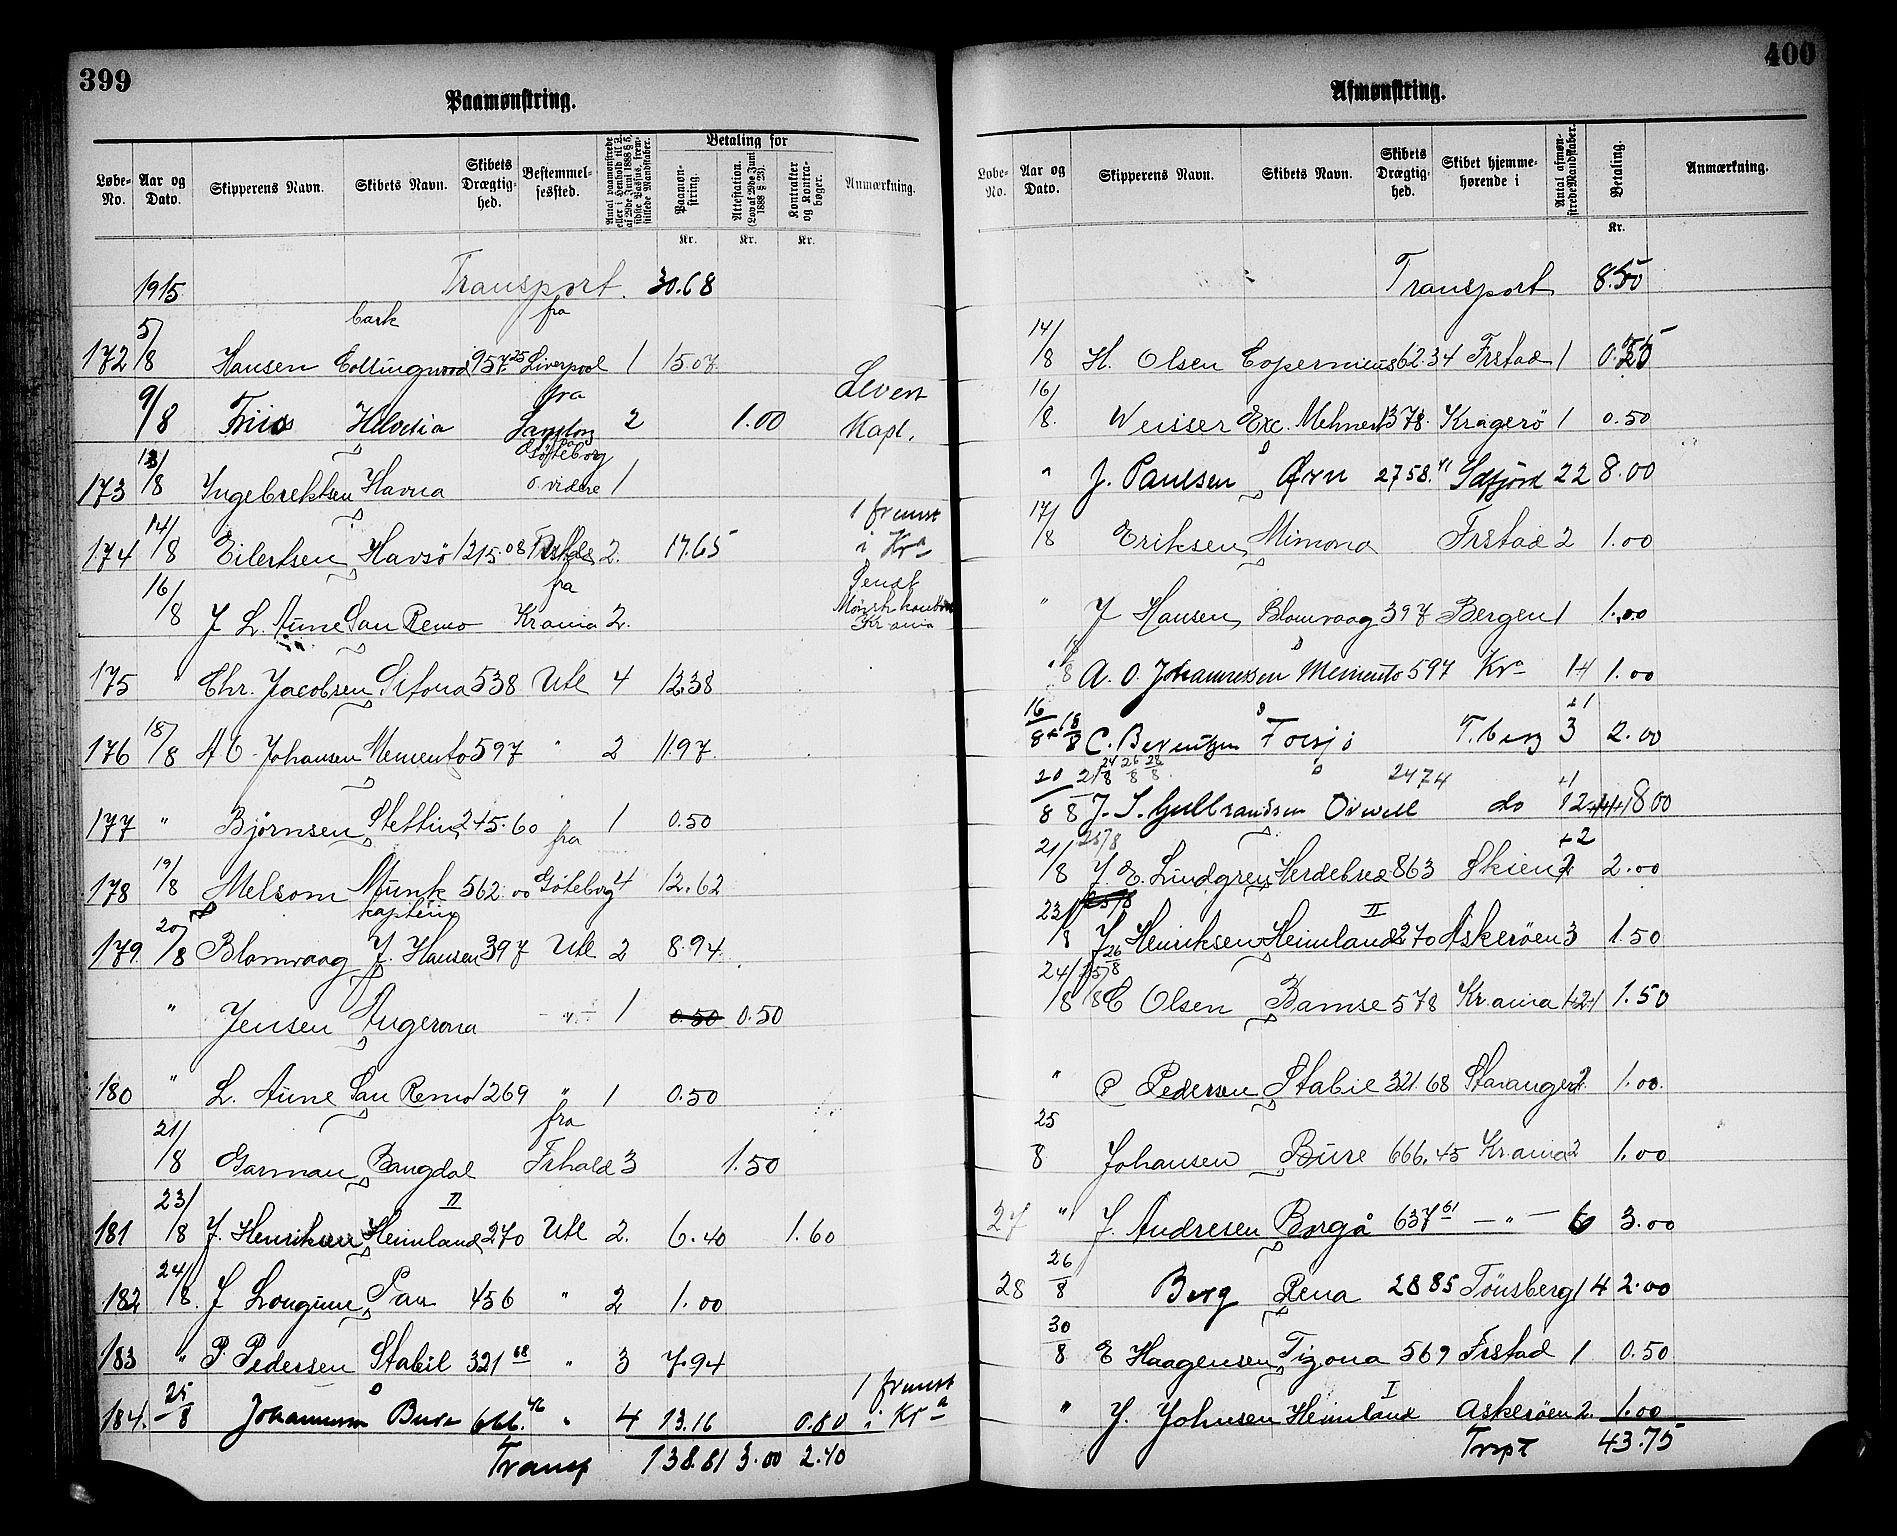 399
Paamønstring.
Løbe-No. Aar og Dato. Skipperens Navn. Skibets Navn. Skibets Drægtighed. Bestemmelsessted. Antal paamønstrede eller i Henhold til L. af 29de Juni 1888 § 5, sidste Passus, fremstillede Mandskaber. Betaling for Paamønstring. Attestation. (Lov af 29de Juni 1888 § 23). Kontrakter og Kontrabøger. Anmærkning.
Kr. Kr. Kr.
1915 Transport. 30.68
bark fra
172 5/8 Hansen Collingwood 957.25 Liverpool 1 15.07
fra Levert
9/8 Friis Helvetia 2 1.00 Kapt.
Göteborg
173 13/8 Ingebrektsen Havna o. videre 1
1 fremst
174 14/8 Eilertsen Havsø 1215.08 2. 17.65 i Kra
fra Sendt
16/8 J L. Aune San Remo Krania 2. Mønstr.kontor Krania
175 " Chr. Jacobsen Sifona 538 Utl 4 12.38
176 18/8 A O Johansen Memento 597 " 2 11.97
177 " Bjørnsen Stettin 245.60 1 0.50
fra
178 19/8 Melsom Munk 562.00 Göteborg 4 12.62
kaptein
179 20/8 Blomvaag J. Hansen 397 Utl 2 8.94
" Jensen Angerona - " - 1 0.50 0.50
180 " L. Aune San Remo 1269 " 1 0.50
fra
21/8 Garman Bangdal Frhald 3 1.50
181 23/8 J. Henriksen Heimland II 270 Utl 2. 6.40 1.60
182 24/8 J Longum Pan 456 " 2 1.00
183 " P. Pedersen Stabil 321 68 " 3 7.94
1 fremst
184. 25/8 Johannesen Bure 666.46 " 4 13.16 0.80 i Kra
Transp 138.81 3.00 2.40
400
Afmønstring.
Løbe-No. Aar og Dato. Skipperens Navn. Skibets Navn. Skibets Drægtighed. Skibet hjemmehørende i Antal afmønstrede Mandskaber. Betaling. Anmærkning.
Kr.
Transport 8.50
14/8 H. Olsen Copernicus 62.34 Frstad 1
16/8. Weisser Exc. Mehnert 1378. Kragerö 1 0.50
" J. Paulsen Ørn 2758.41 Sdfjord 22 8.00
17/8 Eriksen Mimona Frstad 2 1.00
" J Hansen Blomvaag 397 Bergen 1 1.00
18/8 A. O. Johannessen Memento 597 Kra 1+1 1.00
16/8 18/8 C. Berentzen Torsjø T.berg 3 2.00
24/8 26/8 28/8
20/8 21/8 J. S. Gulbrandsen Orwell 2474 do 8.00
25/8 +2
21/8 J. E. Lindgren Herdebred 863 Skien 2 2.00
23/8 J Henriksen Heimland II 270 Askerøen 3 1.50
24/8 25/8 26/8 C Olsen Bamse 578 Krania 1+2+1 1.50
" P Pedersen Stabil 321.68 Stavanger 2. 1.00.
25/8 Johansen Bure 666.45 Krania 2 1.00
27 " J. Andresen Borgå 637 61 - " - 6 3.00
28 26/8 Berg Rena 2885 Tönsberg 14 2.00
30/8 E Haagensen Tigona 569 Frstad 1 0.50
" J. Johnsen Heimland I Askerøen 2. 1.00
Trspt 43.75